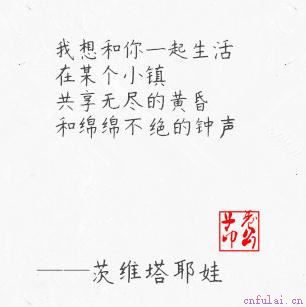 我想和你一起生活
在某个小镇
共享无尽的黄昏
和绵绵不绝的钟声
——茨维塔耶娃
cnfulai.cn